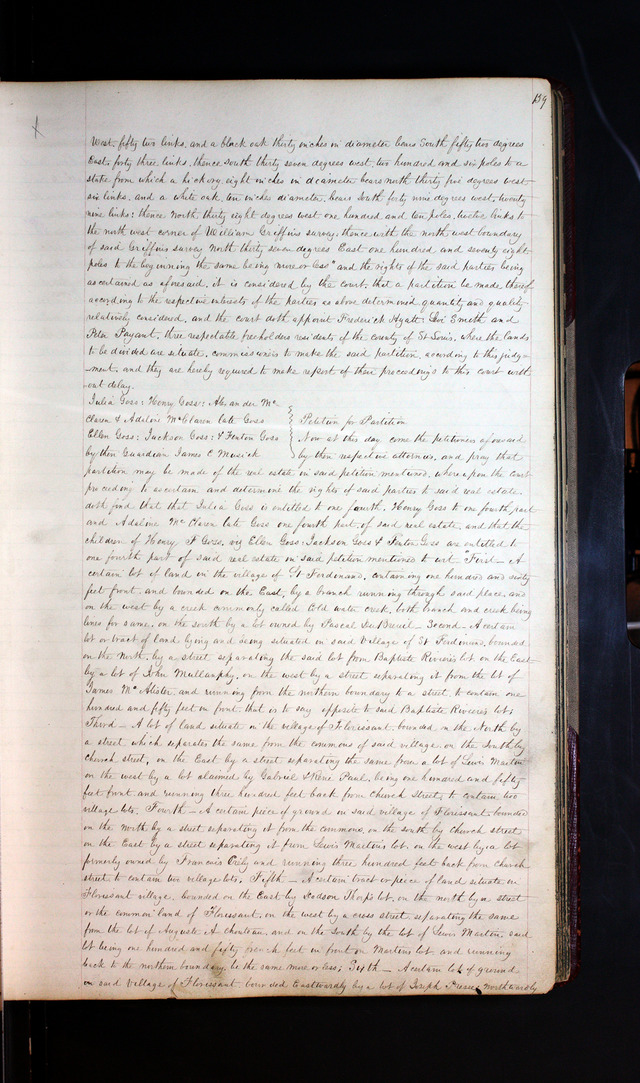 159
West, fifty two links, and a black oak thirty inches in diameter bears South fifty two degrees
East, forty three links, thence south thirty seven degrees west, two hundred and six poles to a
stake from which a hickory, eight inches in diameter bears north thirty five degrees west
six links, and a white oak, ten inches diameter, bears South forty nine degrees west, twenty
nine links: thence North, thirty eight degrees west one hundred and ten poles, twelve links to
the north west corner of William Griffins survey, thence with the north west boundary
of said Griffins survey North thirty seven degrees East one hundred and seventy eight
poles to the beginning the same being more or less" and the rights of the said parties being
ascertained as aforesaid, it is considered by the court, that a partition be made thereof
according to the respective interests of the parties as above determined quantity and quality
relatively considered, and the court doth appoint Frederick Hyatt Levi Smith and
Peter Payant, three respectable freeholders residents of the county of St Louis, where the lands
to be divided are situate, commissioners to make the said partition, according to this judg-
-ment, and they are hereby required to make report of their proceedings to this court with
-out delay.
Julia Goss: Henry Goss: Alexander Mc
Claren & Adaline McClaren late Goss Petition for Partition
Ellen Goss: Jackson Goss: & Fenton Goss Now at this day come the petitioners aforesaid
by their Guardian James C Musick by their respective attornies, and pray that
partition may be made of the real estate in said petition mentioned, whereupon the court
proceeding to ascertain and determine the rights of said parties to said real estate
doth find that that Julia Goss is entitled to one fourth, Henry Goss to one fourth part
and Adaline McClaren late Goss one fourth part, of said real estate, and that the
children of Henry F Goss, viz Ellen Goss: Jackson Goss & Fenton Goss are entitled to
one fourth part of said real estate in said petition mentioned to wit "First - A
certain lot of land in the village of St Ferdinand, containing one hundred and sixty
feet front, and bounded on the East, by a branch running through said place, and
on the west by a creek commonly called Cold water creek, both branch and creek being
lines for same, on the south by a lot owned by Pascal - Second - A certain
lot or tract of land lying and being situated in said Village of St Ferdinand, bounded
on the north, by a street separating the said lot from Baptiste Rivieres lot, on the East
by a lot of John Mullanphy, on the west by a street separating it from the lot of
James McAlister and running from the northern boundary to a street, to contain one
hundred and fifty feet in front, that is to say opposite to said Baptiste Rivieres lot:
Third - A lot of land situate in the village of Florissant, bounded on the North by
a street which separates the same from the commons of said village, on the South by
Church street, on the East by a street separating the same from a lot of Lewis Martin
on the west by a lot claimed by Gabriel & René Paul, being one hundred and fifty
feet front and running three hundred feet back from Church Street, to contain two
village lots, Fourth - A certain piece of ground in said village of Florissant, bounded
on the North by a street separating it from the commons, on the south by Church street
on the East by a street separating it from Lewis Martins lot, on the west by a lot
formerly owned by Francois and running three hundred feet back from Church
street to contain two village lots, Fifth - A certain tract or piece of land situate in
Florissant village, bounded on the East by Dodson Thorps lot, on the north by a street
or the common land of Florissant, on the west by a cross street separating the same
from the lot of Auguste A Chouteau, and on the south by the lot of Lewis Martin, said
lot being one hundred and fifty french feet in front on Martins lot, and running
back to the northern boundary, be the same more or less; Sixth - A certain lot of ground
in said Village of Florissant, bounded Eastwardly by a lot of Joseph northwardly